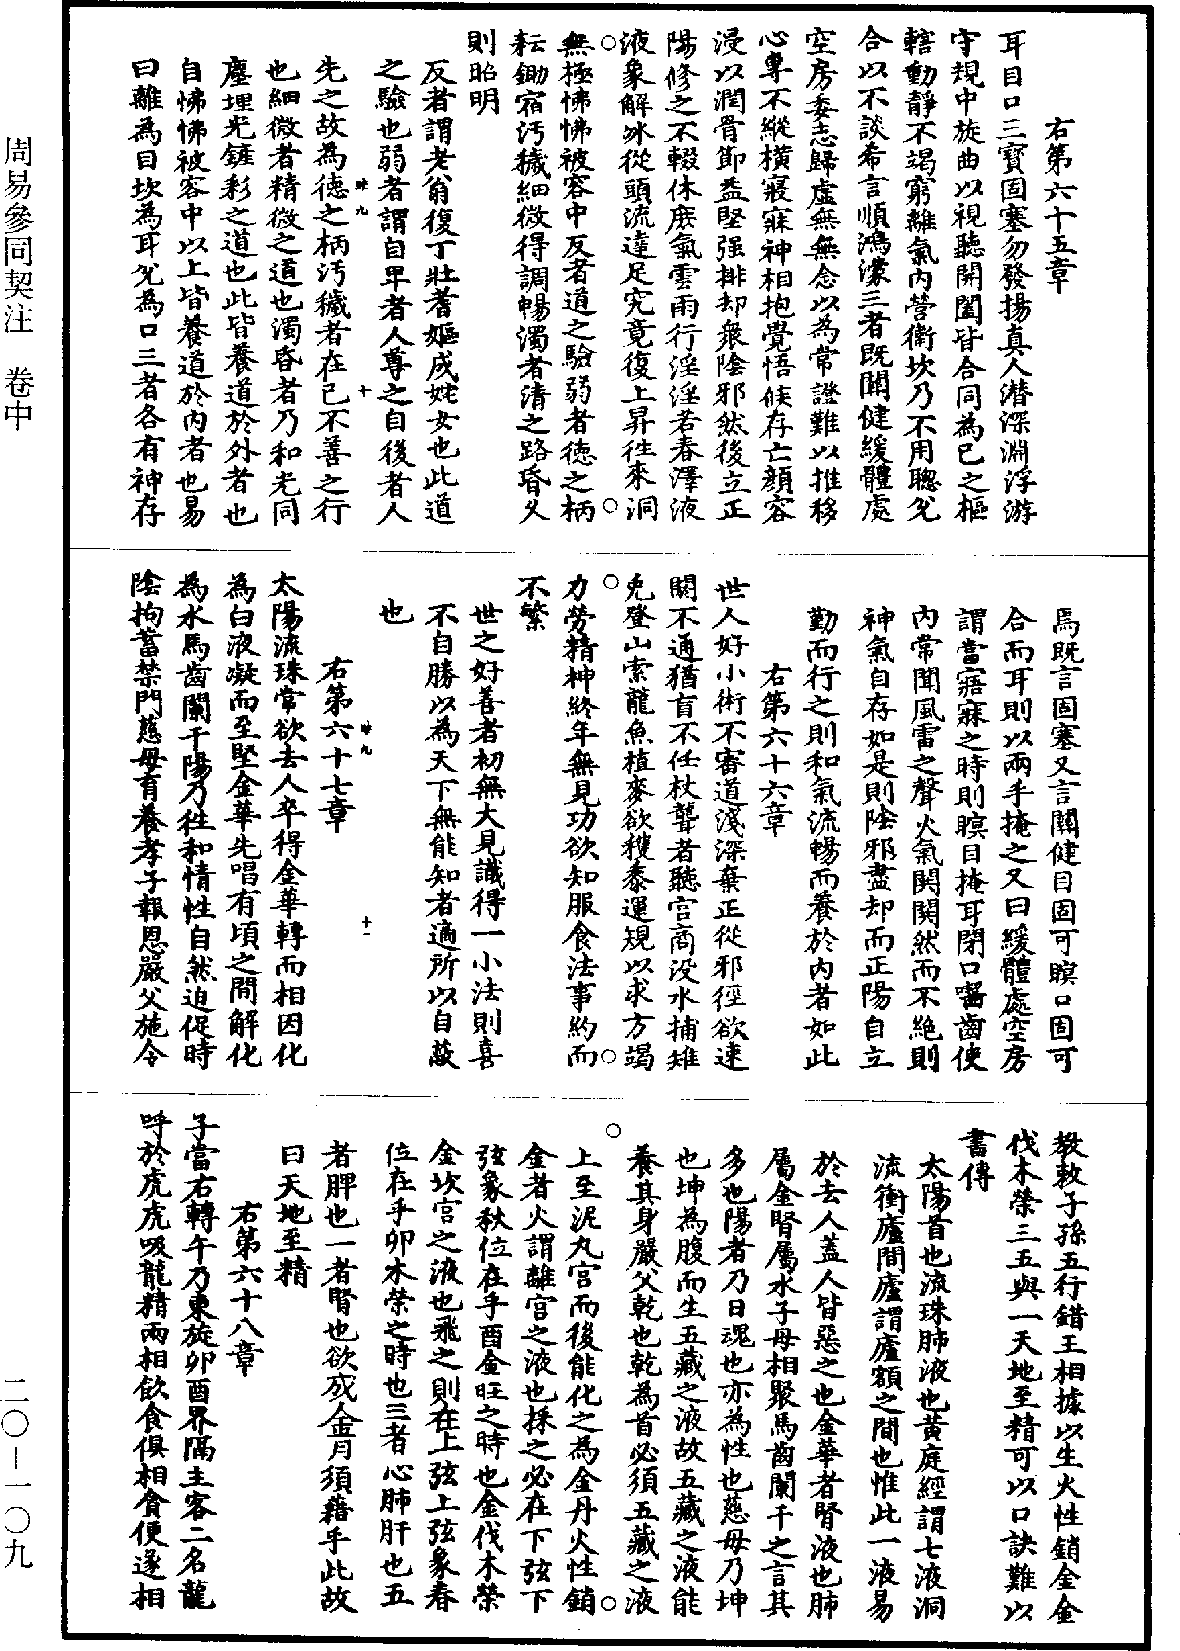 右第六十五章
耳目口三寶固塞勿發揚真人潛深淵浮游
守規中旋曲以視聽開闔皆合同為己之樞
轄動靜不竭窮離氣內營衛坎乃不用聰兌
合以不談希言順鴻濛三者既關健緩體處
空房委志歸虛無無念以為常證難以推移
心專不縱橫寢寐神相抱覺悟候存亡顏容
浸以潤骨節益堅强排却衆陰邪然後立正
陽修之不輟休庶氣雲雨行淫淫若春澤液
液象解冰從頭流達足究竟復上昇往來洞
無極怫怫被容中反者道之驗弱者德之柄
耘鋤宿污穢細微得調暢濁者清之路昏久
則昭明
反者謂老翁復丁壯耆嫗成姹女也此道
之驗也弱者謂自卑者人尊之自後者人
先之故為德之柄污穢者在己不善之行
也細微者精微之道也濁昏者乃和光同
塵埋光鏟彩之道也此皆養道於外者也
自怫怫被容中以上皆養道於內者也易
曰離為目坎為耳兌為口三者各有神存
焉既言固塞又言關健目固可瞑口固可
合而耳則以兩手掩之又曰緩體處空房
謂當寤寐之時則瞑目掩耳閉口嚙齒使
內常聞風雷之聲火氣関関然而不絶則
神氣自存如是則陰邪盡却而正陽自立
勤而行之則和氣流暢而養於內者如此
右第六十六章
世人好小術不審道淺深棄正從邪徑欲速
閼不通猶盲不任杖聾者聽宫商没水捕雉
兔登山索龍魚植麥欲穫黍運規以求方竭
力勞精神終年無見功欲知服食法事約而
不繁
世之好善者初無大見識得一小法則喜
不自勝以為天下無能知者適所以自蔽
也
右第六十七章
太陽流珠常欲去人卒得金華轉而相因化
為白液凝而至堅金華先唱有頃之間解化
為水馬齒闌干陽乃往和情性自然迫促時
陰拘蓄禁門慈母育養孝子報恩嚴父施令
教敕子孫五行錯王相據以生火性銷金金
伐木榮三五與一天地至精可以口訣難以
書傳
太陽首也流珠肺液也黃庭經謂七液洞
流衝廬間廬謂廬額之間也惟此一液易
於去人蓋人皆惡之也金華者腎液也肺
屬金腎屬水子母相聚馬齒闌干之言其
多也陽者乃日魂也亦為性也慈母乃坤
也坤為腹而生五藏之液故五藏之液能
養其身嚴父乾也乾為首必須五藏之液
上至泥丸宫而後能化之為金丹火性銷
金者火謂離宫之液也採之必在下弦下
弦象秋位在乎酉金旺之時也金伐木榮
金坎宫之液也飛之則在上弦上弦象春
位在乎卯木榮之時也三者心肺肝也五
者脾也一者腎也欲成金月須藉乎此故
曰天地至精
右第六十八章
子當右轉午乃東旋卯酉界隔主客二名龍
呼於虎虎吸龍精兩相飲食俱相貪便遂相
周易參同契注 卷中
二〇-一〇九